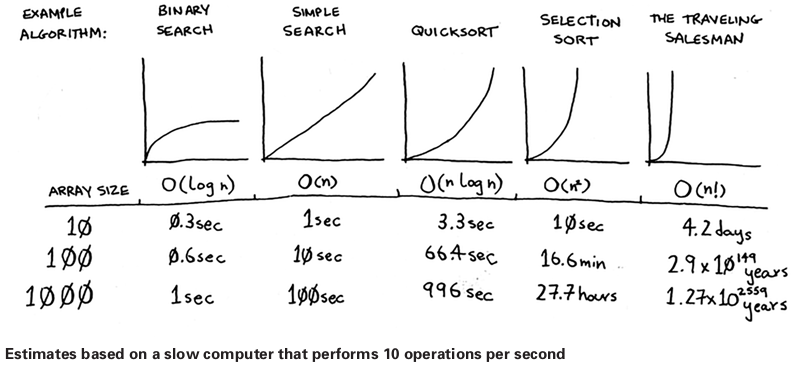 EXAMPLE ALGORITHM: BINARY SEARCH SIMPLE SEARCH QUICKSORT SELECTION SORT THE TRAVELING SALESMAN
ARRAY SIZE O(log n) O(n) O(n log n) O(n²) O(n!)
10 0.3sec 1sec 3.3sec 10sec 4.2 days
100 0.6sec 10sec 664sec 16.6min 2.9x10¹⁴⁹ years
1000 1sec 100sec 996sec 27.7hours 1.27x10²⁵⁵⁹ years
Estimates based on a slow computer that performs 10 operations per second